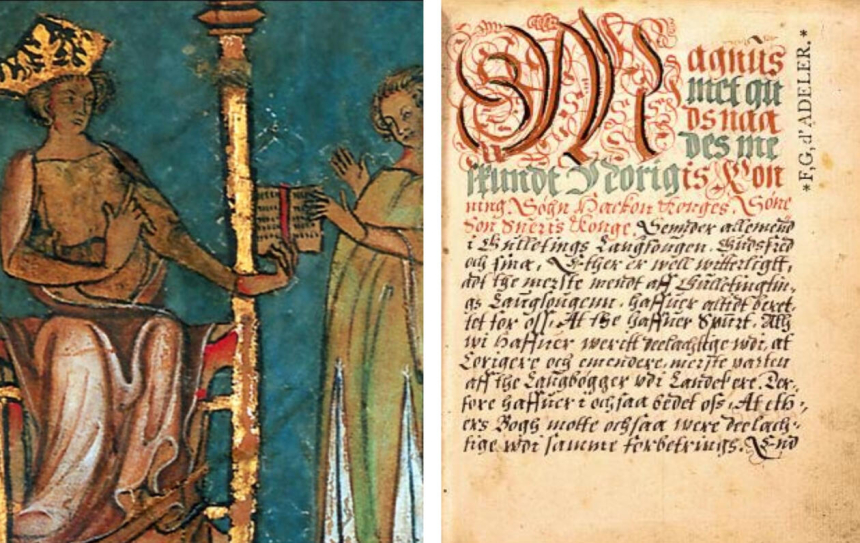 Magnus
met gu
ds naa
des me
skundt Norigis Kon
ning Sogn Hackon Konges, Søne
Søn Sueris Konge, Sennder allemend
i Gulletings Laugsongen. Gudsfred
och sina, Ether er well witterligtt,
att the merste mendt aff Gulletingtin,
gs Lauglougenn, haffuer altidt beret,
tet for oss. At the haffuer Spurt, Ath
wi haffuer werett deelachtige wdi, at
Corigere och emendere, meiste parten
aff the Laugbogger wdi Landet ere. Der,
fore haffuer i ochsaa bedet oss, At eth,
ers Bogh motte ochsaa were deelach-
tige wdi samme forbetrings. End
*F,G,d'ADELER.*